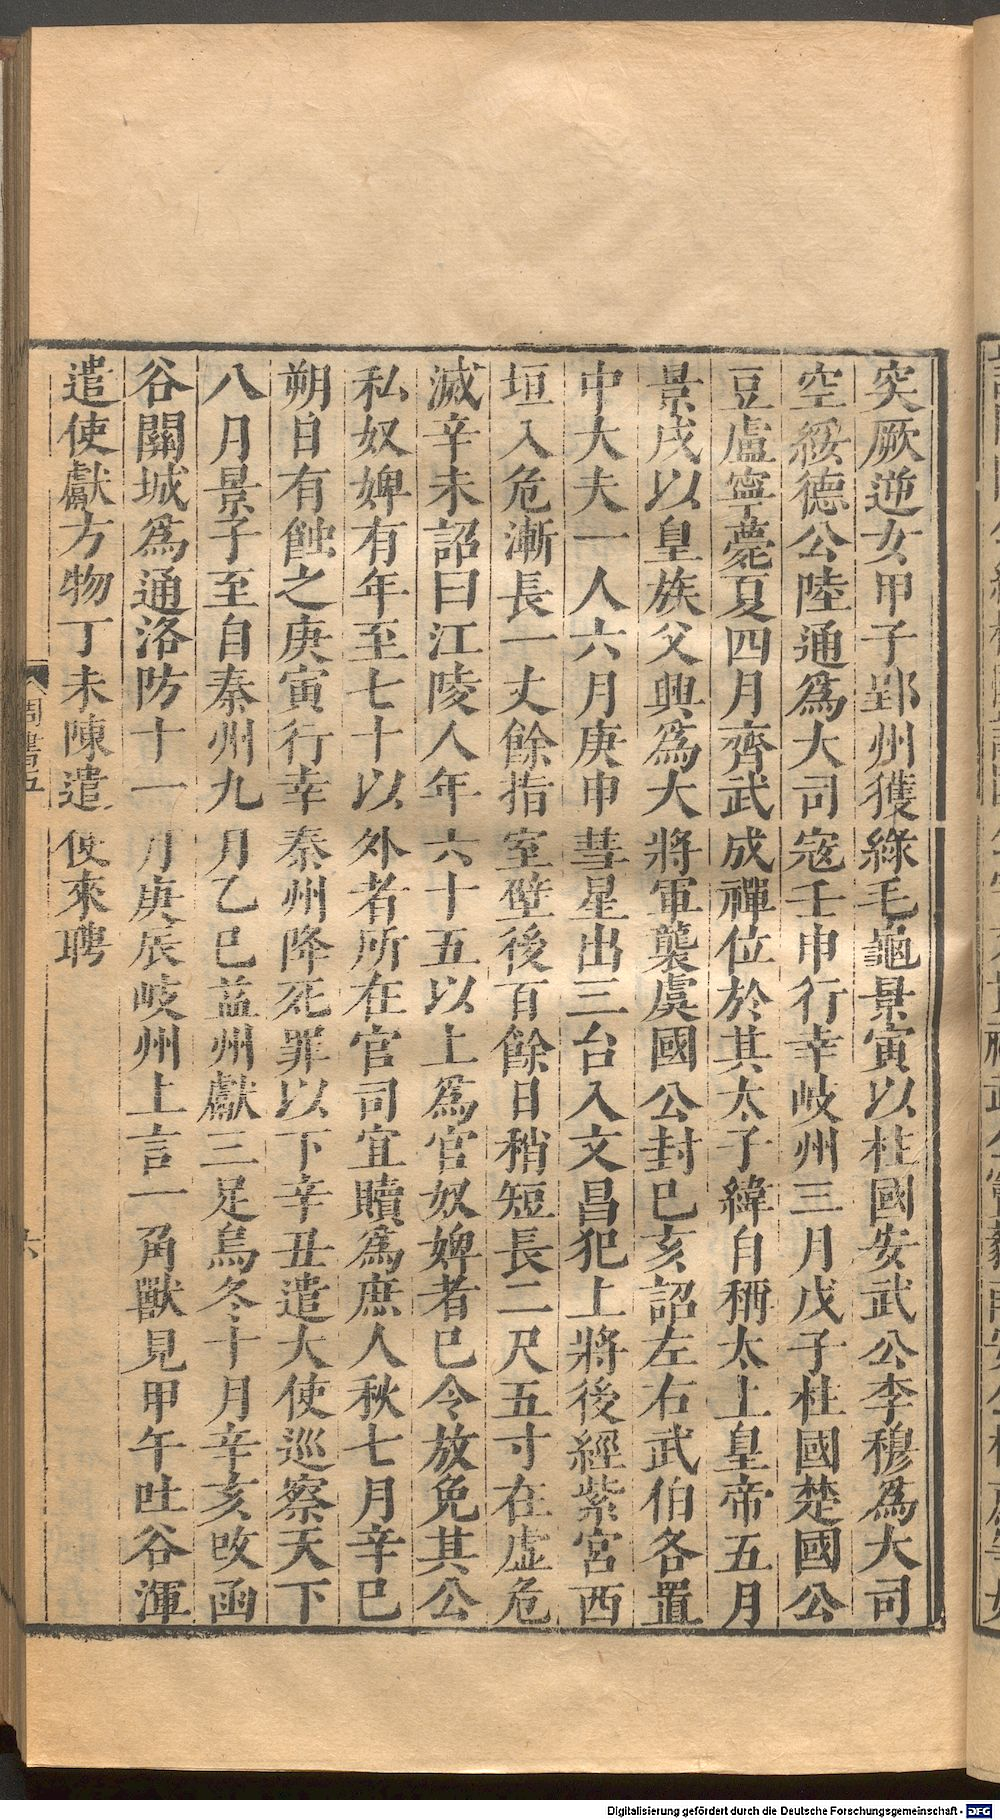 突厥逆女甲子郢州獲綠毛龜景寅以柱國安武公李穆爲大司
空綏德公陸通爲大司寇壬申行幸岐州三月戊子柱國楚國公
豆盧寧薨夏四月齊武成禪位於其太子緯自稱太上皇帝五月
景戌以皇族父興爲大將軍襲虞國公封巳亥詔左右武伯各置
中大夫一人六月庚申彗星出三台入文昌犯上將後經紫宮西
垣入危漸長一丈餘指室壁後百餘日稍短長二尺五寸在虛危
滅辛未詔曰江陵人年六十五以上爲官奴婢者巳令放免其公
私奴婢有年至七十以外者所在官司宜贖爲庶人秋七月辛巳
朔日有蝕之庚寅行幸秦州降死罪以下辛丑遣大使巡察天下
八月景子至自秦州九月乙巳益州獻三足烏冬十月辛亥改函
谷關城爲通洛防十一月庚辰岐州上言一角獸見甲午吐谷渾
遣使獻方物丁未陳遣使來聘
周書五
六
Digitalisierung gefördert durch die Deutsche Forschungsgemeinschaft - DFG